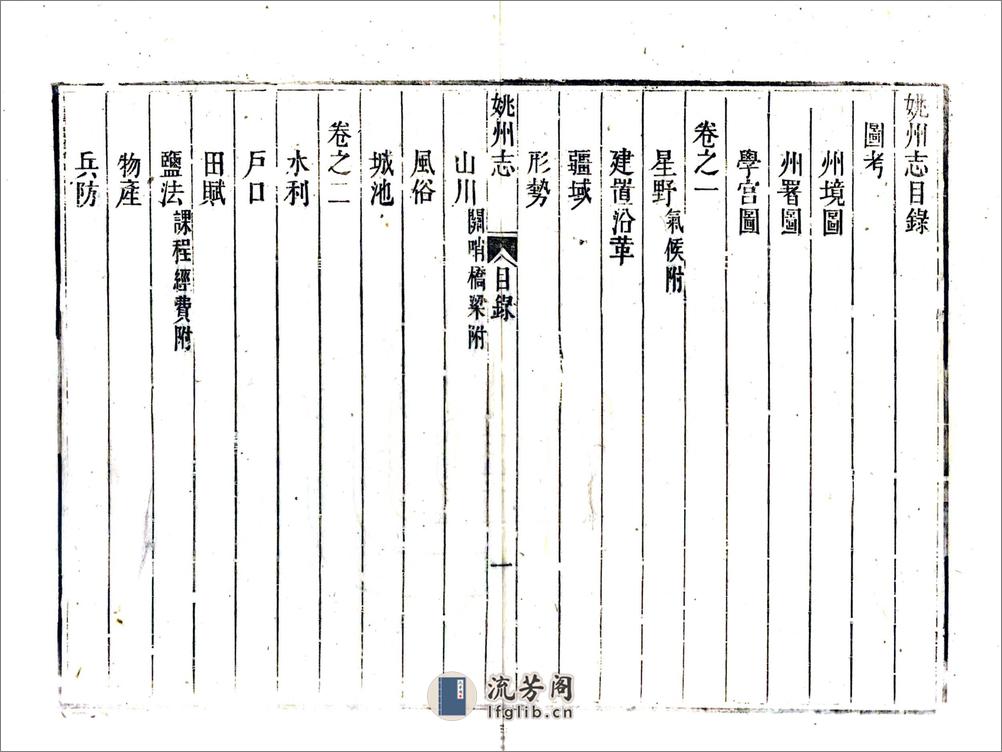 姚州志目錄
圖考
州境圖
州署圖
學宮圖
卷之一
星野氣候附
建置沿革
疆域
形勢
姚州志 目錄 一
山川關哨橋梁附
風俗
城池
卷之二
水利
戶口
田賦
鹽法課程經費附
物產
兵防
流芳阁
lfglib.cn